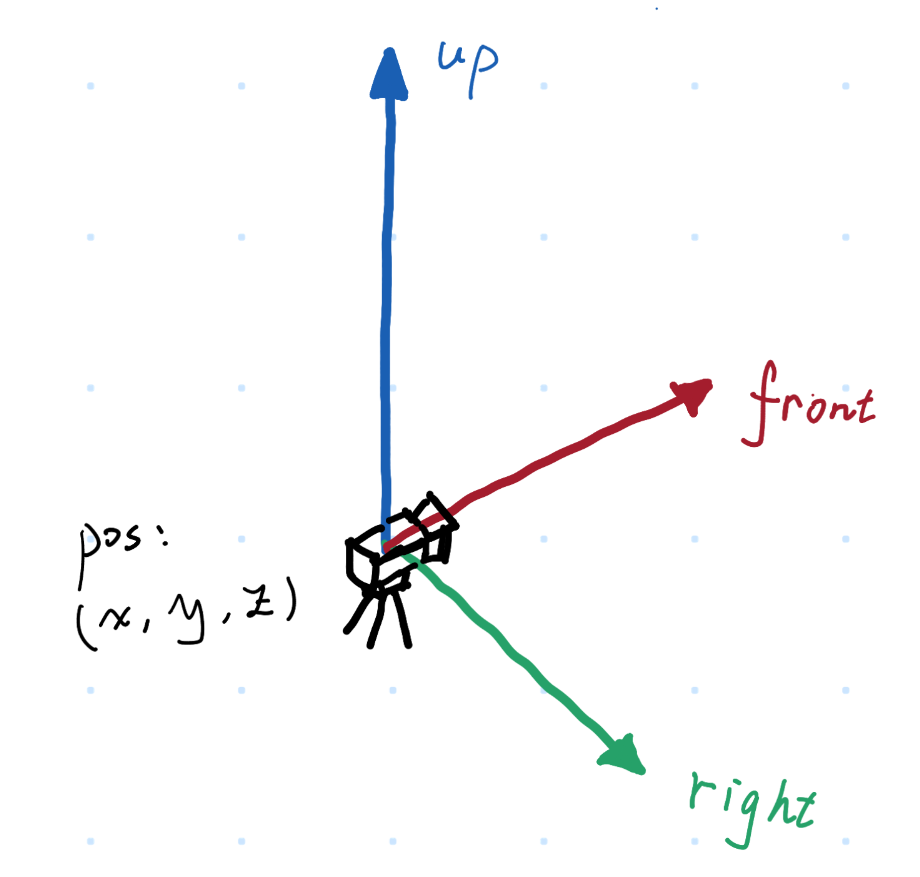 up
front
pos:
(x, y, z)
right